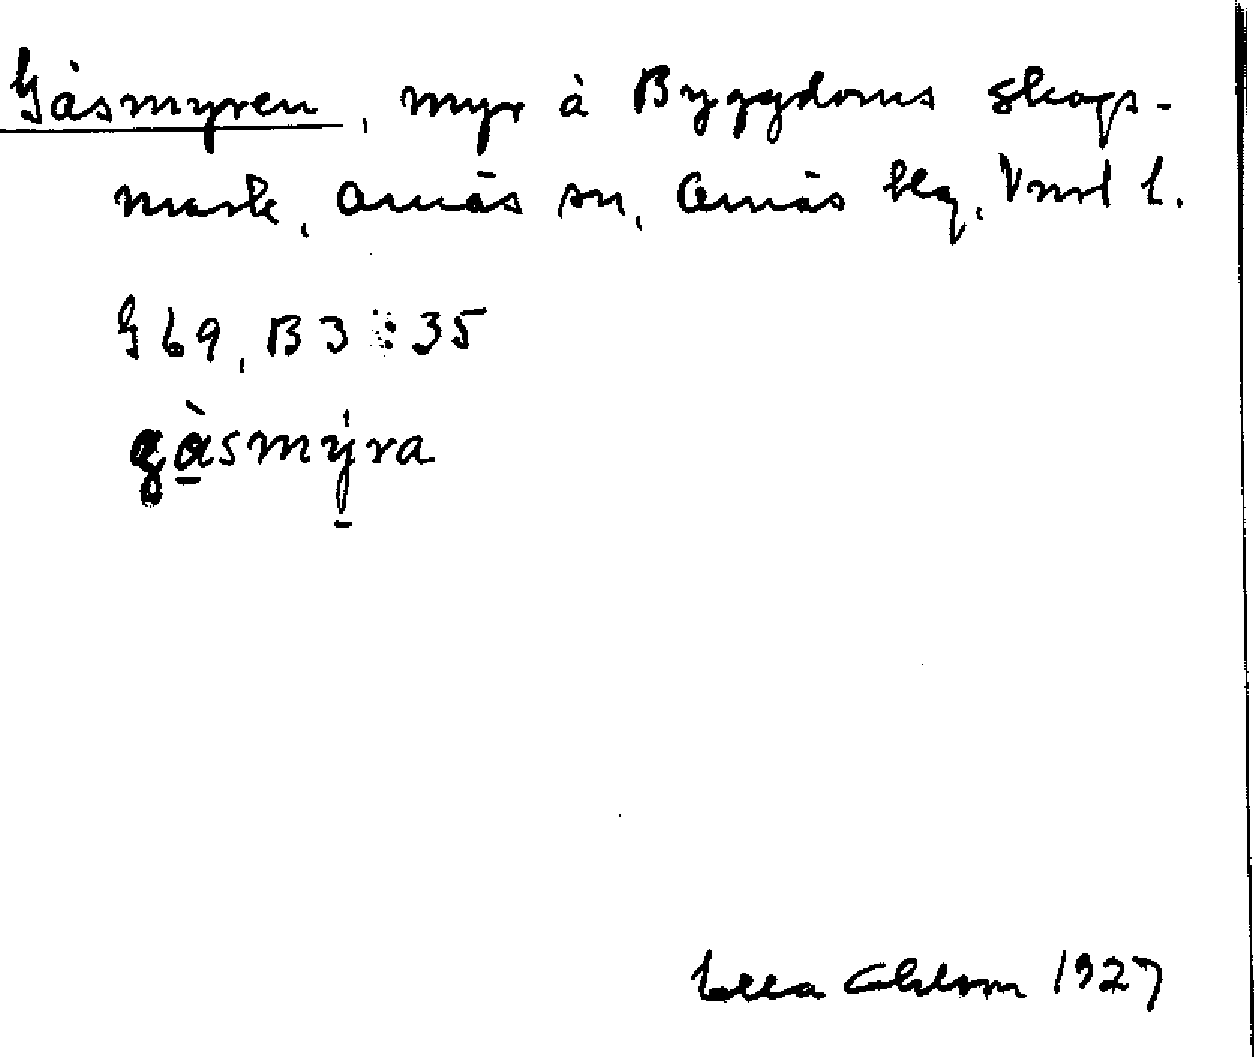 Gåsmyren, myr å Byggdoms skogs-
mark, Arnäs sn, Arnäs skg, Vnrl l.
G 69, B 3 : 35
gàsmýra
Ohlsson 1927